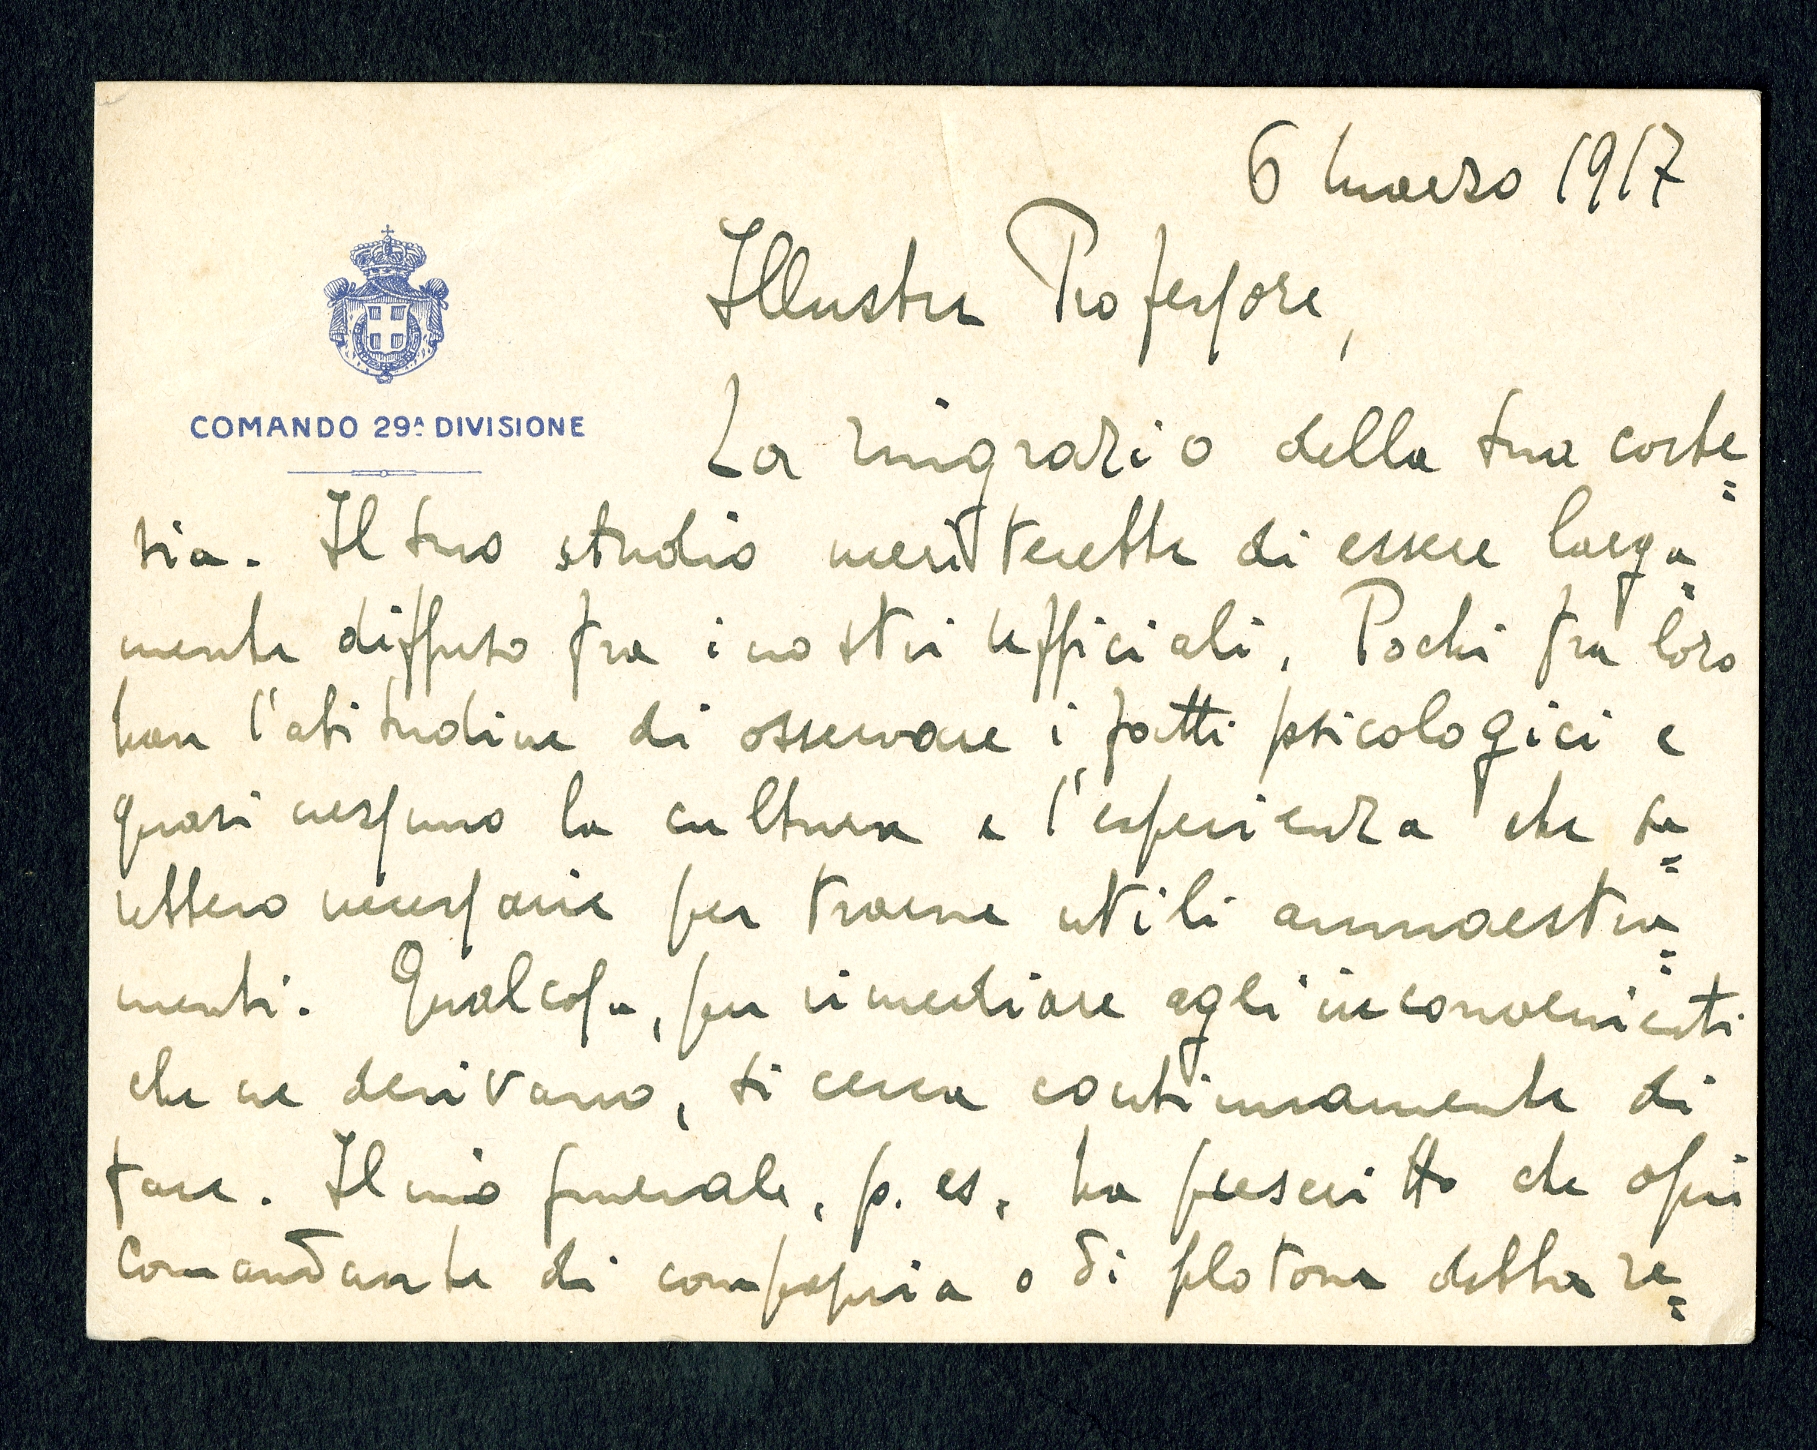 6 marzo 1917
COMANDO 29ª DIVISIONE
Illustre Professore,
La ringrazio della sua corte=
sia. Il suo studio meriterebbe di essere larga=
mente diffuso fra i nostri ufficiali. Pochi fra loro
han l'abitudine di osservare i fatti psicologici e
quasi nessuno la cultura e l'esperienza che sa=
rebbero necessarie per trarne utili ammaestra=
menti. Qualcosa, per rimediare agli inconvenienti
che ne derivano, si cerca continuamente di
fare. Il mio generale, p. es., ha prescritto che ogni
comandante di compagnia o di plotone debba re=